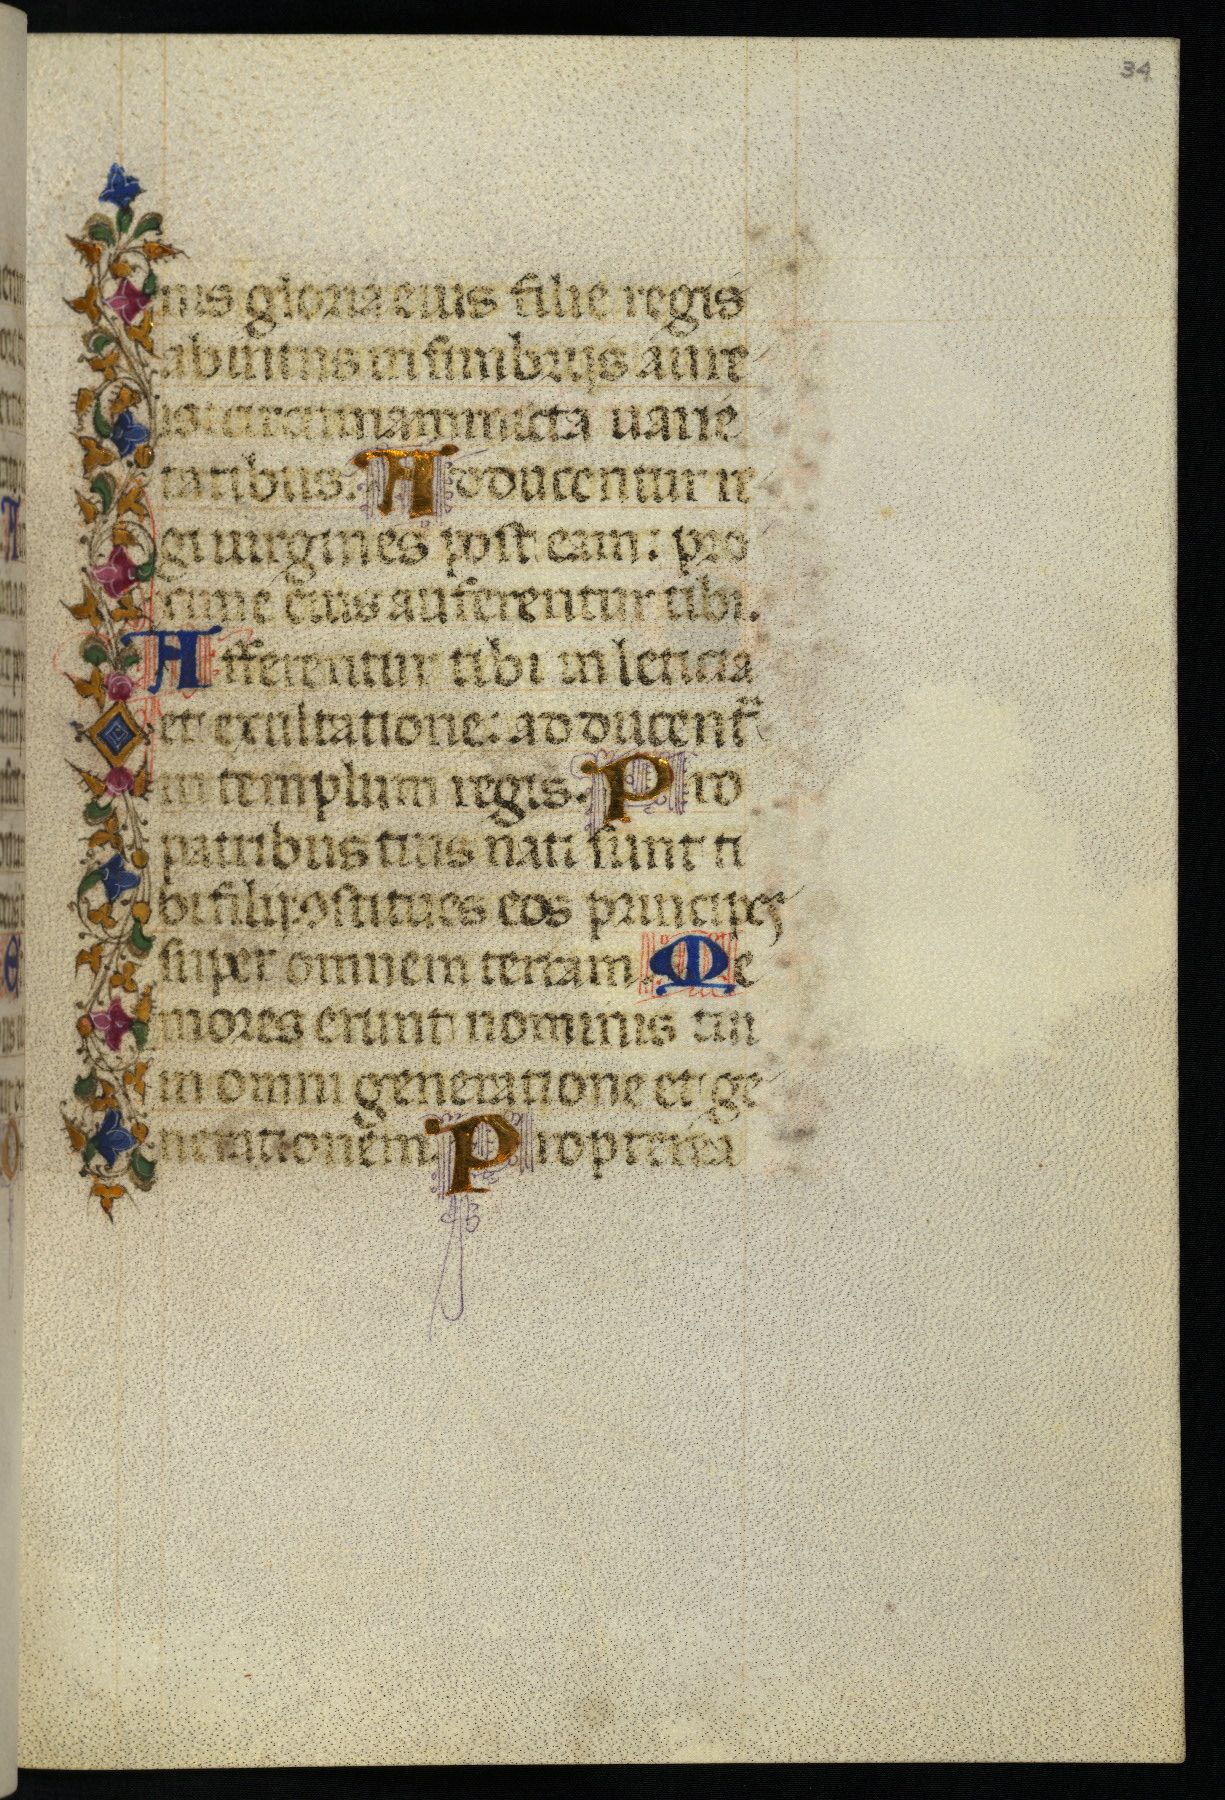 34
nis gloria eius filie regis
ab intus in fimbrijs aure
is circunamicta uarie
tatibus. Adducentur re
gi uirgines post eam: pro
cime eius auferentur tibi.
Afferentur tibi in leticia
et exultatione: adducent᷑
in templum regis. Pro
patribus tuis nati sunt ti
bi filij: ꝯstitues eos principes
super omnem terram. Me
mores erunt nominis tui
in omni generatione et ge
nerationem. Propterea